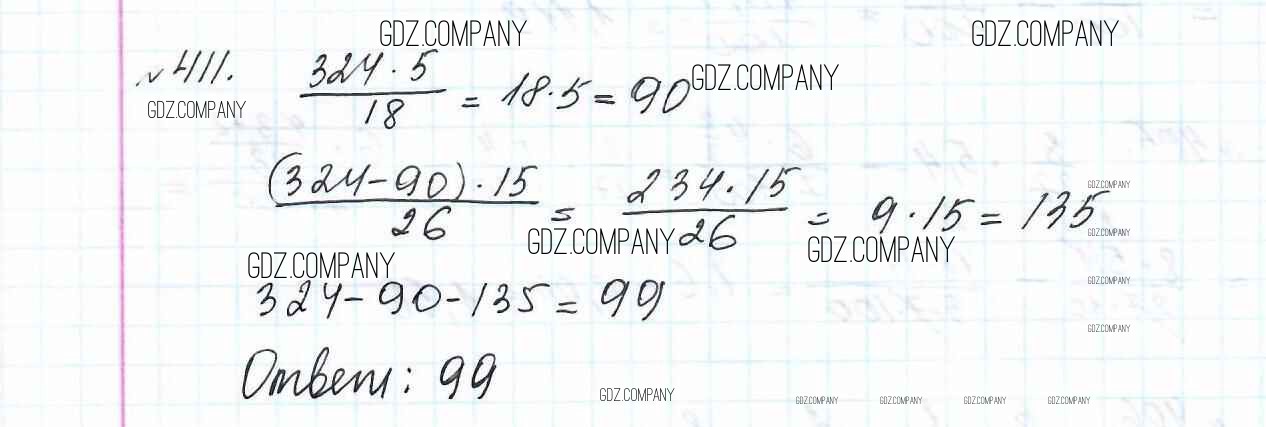 GDZ.COMPANY GDZ.COMPANY
№ 411. 324·5/18 = 18·5 = 90
GDZ.COMPANY
GDZ.COMPANY
(324-90)·15/26 = 234·15/26 = 9·15 = 135
GDZ.COMPANY
GDZ.COMPANY
GDZ.COMPANY GDZ.COMPANY
GDZ.COMPANY
324-90-135 = 99
GDZ.COMPANY
GDZ.COMPANY
Ответ: 99
GDZ.COMPANY GDZ.COMPANY GDZ.COMPANY GDZ.COMPANY GDZ.COMPANY